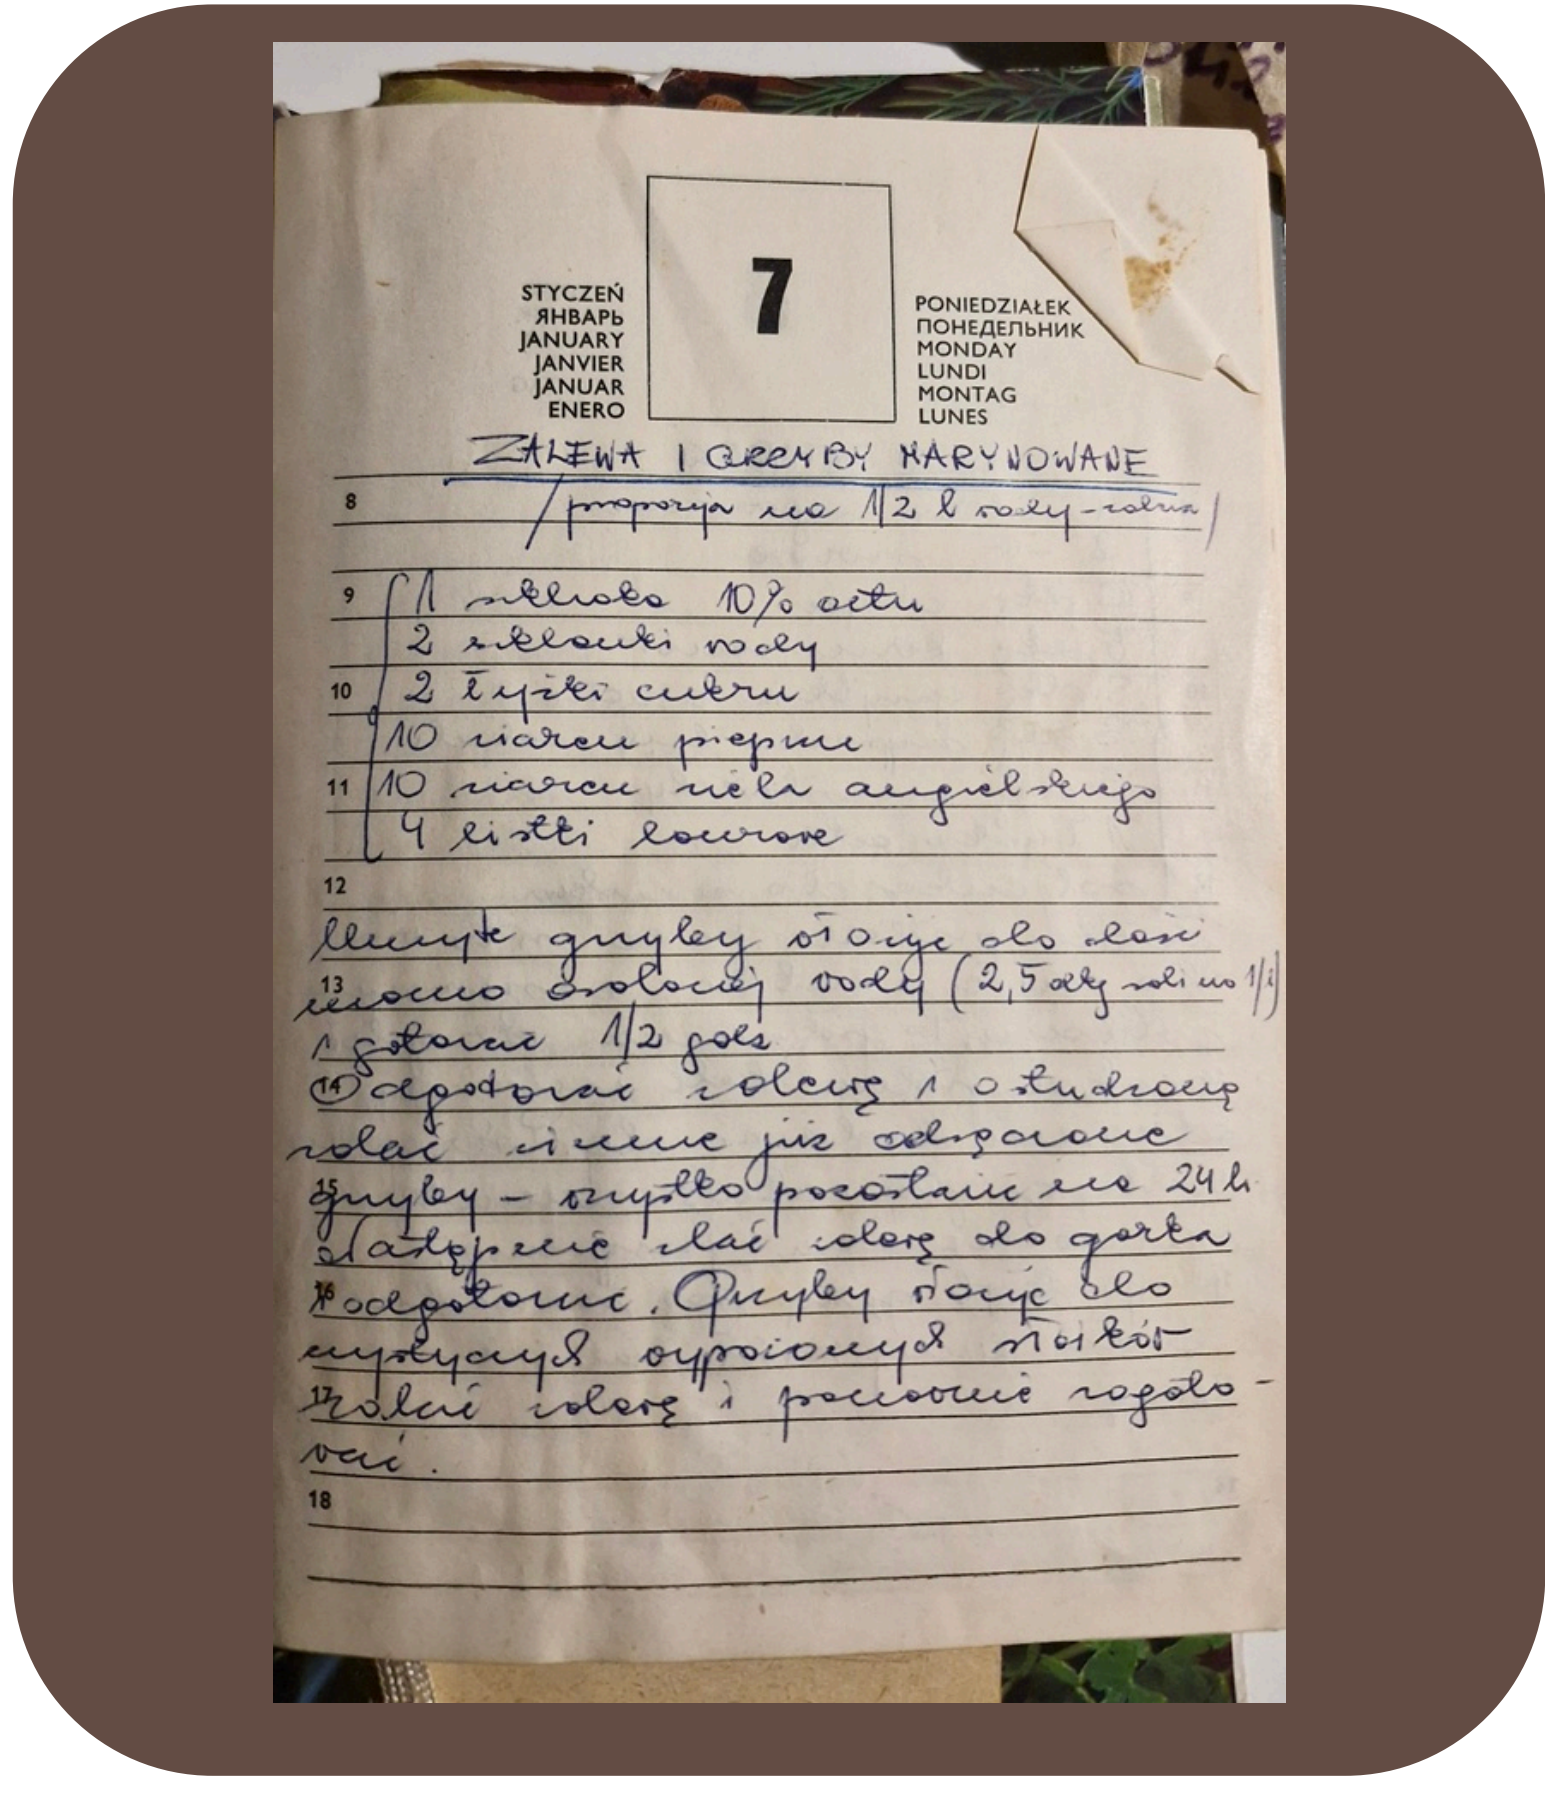 7
STYCZEŃ
ЯНВАРЬ
JANUARY
JANVIER
JANUAR
ENERO
PONIEDZIAŁEK
ПОНЕДЕЛЬНИК
MONDAY
LUNDI
MONTAG
LUNES
ZALEWA I GRZYBY MARYNOWANE
8 /proporcja na 1/2 l wody - zalewa/
9 1 szklanka 10% octu
2 szklanki wody
10 2 łyżki cukru
10 ziaren pieprzu
11 10 ziaren ziela angielskiego
4 listki laurowe
12
Umyte grzyby włożyć do dość
13 mocno osolonej wody (2,5 dkg soli na 1 l)
i gotować 1/2 godz
14 Odgotować zalewę i ostudzoną
zalać zimne już odsączone
15 grzyby - wszystko pozostawić na 24 h
Następnie zlać zalewę do garka
16 odgotować. Grzyby włożyć do
wyparzonych słoików
17 zalać zalewę i ponownie zagoto-
wać.
18